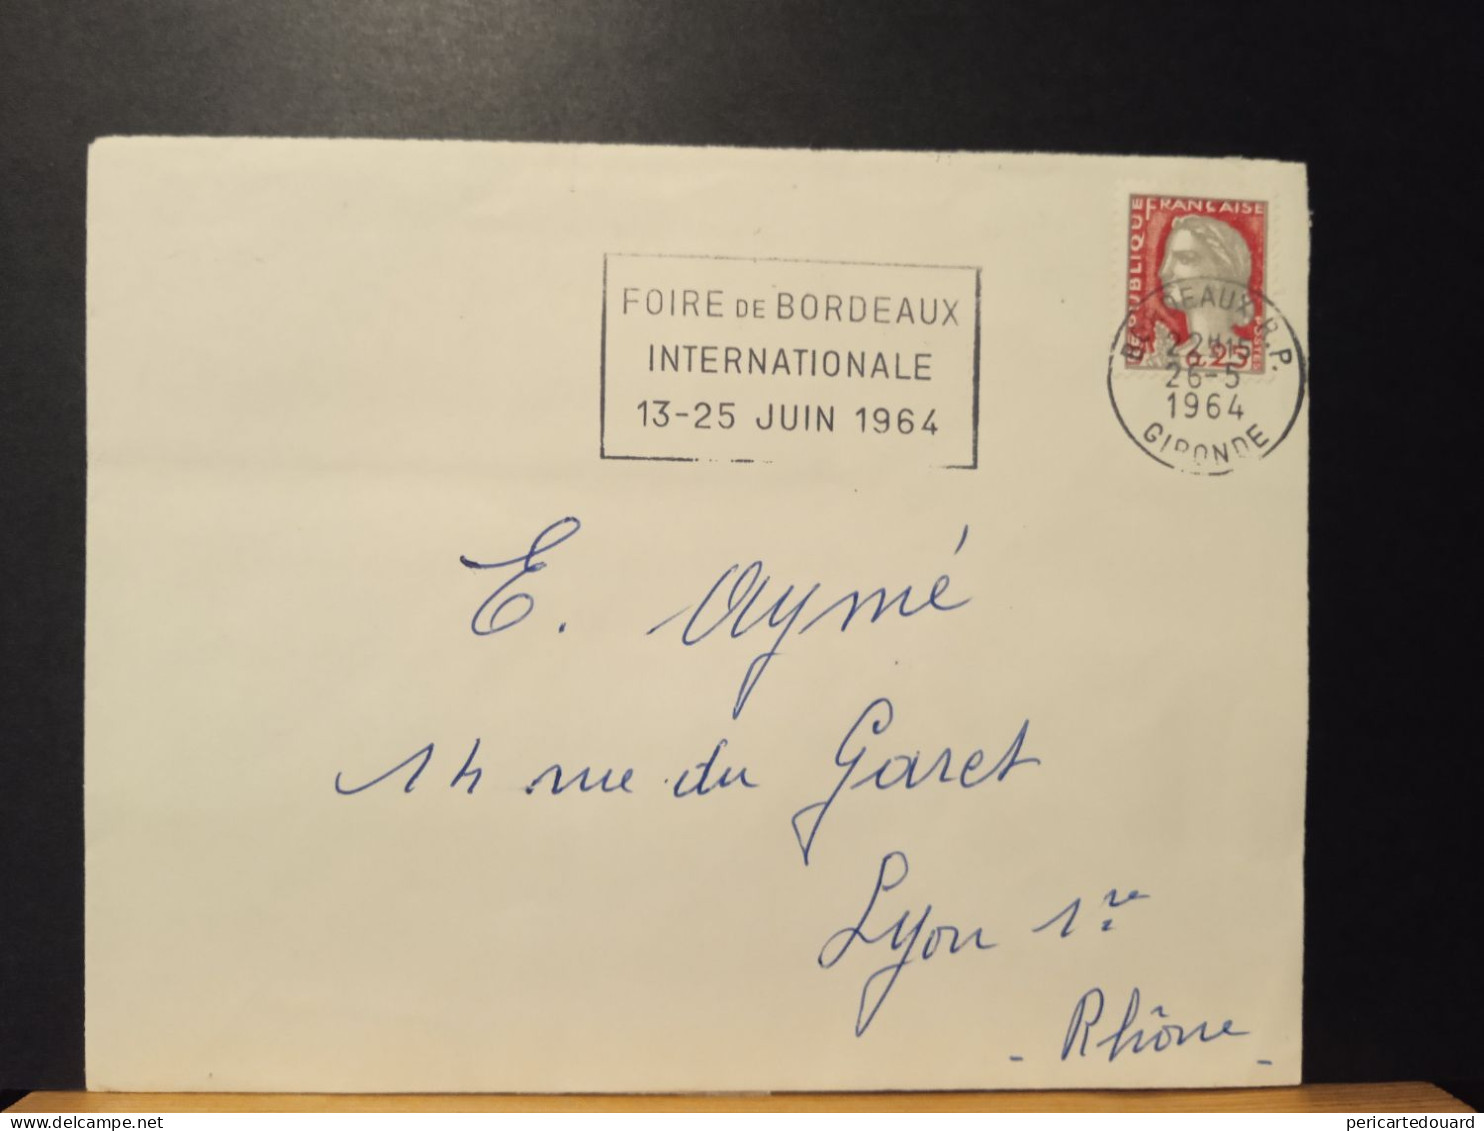 RÉPUBLIQUE FRANÇAISE
0.25
POSTES
FOIRE DE BORDEAUX
INTERNATIONALE
13-25 JUIN 1964
BORDEAUX R.P.
22H15
26-5
1964
GIRONDE
E. Aymé
14 rue du Garet
Lyon 1re
- Rhône -
delcampe.net
pericartedouard